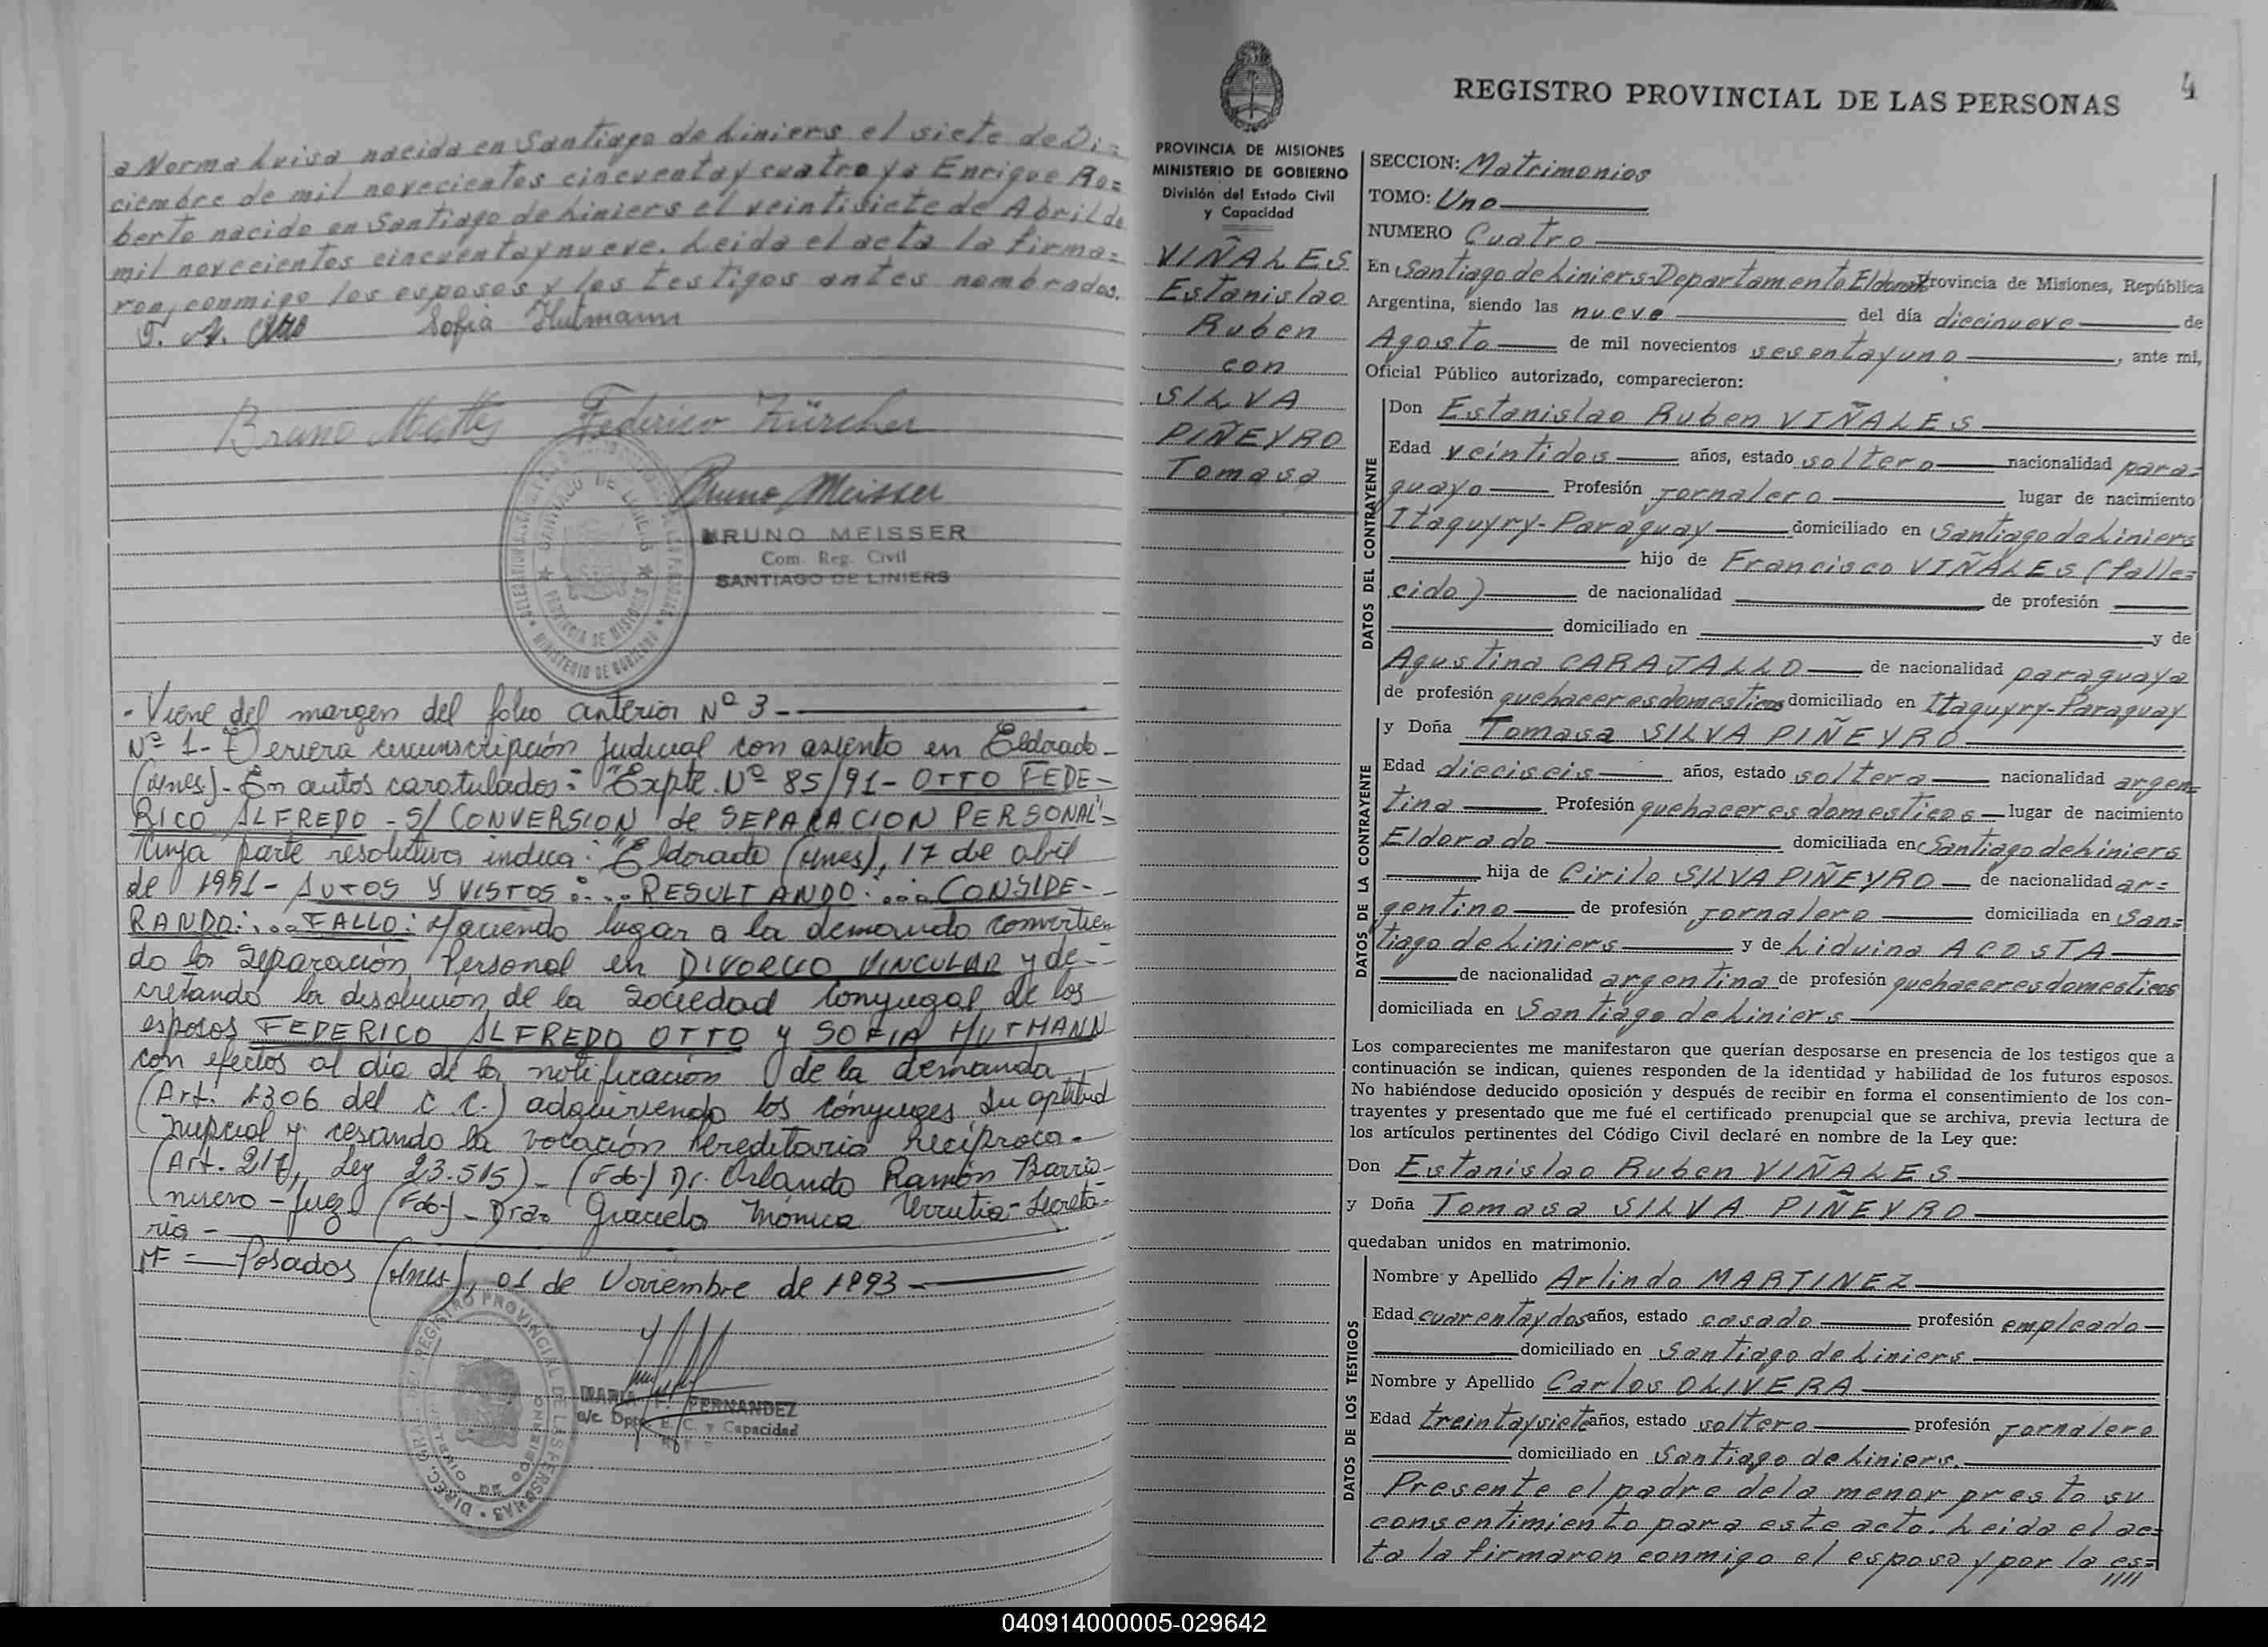 a Norma Luisa nacida en Santiago de Liniers el siete de Di=
ciembre de mil novecientos cincuenta y cuatro y a Enrique Ro=
berto nacido en Santiago de Liniers el veintisiete de Abril de
mil novecientos cincuenta y nueve. Leida el acta la firma=
ron, conmigo los esposos y los testigos antes nombrados.
F. A. Otto Sofia Hutmann
Bruno Federico Zürcher
Bruno Meisser
BRUNO MEISSER
Com. Reg. Civil
SANTIAGO DE LINIERS
SANTIAGO DE LINIERS
PROVINCIA DE MISIONES
MINISTERIO DE GOBIERNO
- Viene del margen del folio anterior Nº 3 -
Nº 1 - Tercera circunscripción judicial con asiento en Eldorado -
(Mnes). En autos caratulados: "Expte. Nº 85/91 - OTTO FEDE-
RICO ALFREDO - S/ CONVERSION de SEPARACION PERSONAL" -
Cuya parte resolutiva indica: "Eldorado (Mnes), 17 de abril
de 1991 - AUTOS Y VISTOS:... RESULTANDO:... CONSIDE-
RANDO:... FALLO: Haciendo lugar a la demanda convirtien
do la Separación Personal en DIVORCIO VINCULAR y de-
cretando la disolución de la Sociedad Conyugal de los
esposos FEDERICO ALFREDO OTTO y SOFIA HUTMANN
con efectos al día de la notificación de la demanda
(Art. 1306 del C.C.) adquiriendo los cónyuges su aptitud
nupcial y cesando la vocación hereditaria recíproca.
(Art. 217, Ley 23.515) - (Fdo.) Dr. Orlando Ramón Barrio-
nuevo - Juez (Fdo) - Dra. Graciela Mónica Urrutia - Secreta-
ria -
MF = Posadas (Mnes), 01 de Noviembre de 1993 -
REGISTRO PROVINCIAL DE LAS PERSONAS
MARIA FERNANDEZ
a/c Dpto. E. C. y Capacidad
4
REGISTRO PROVINCIAL DE LAS PERSONAS
PROVINCIA DE MISIONES
MINISTERIO DE GOBIERNO
División del Estado Civil
y Capacidad
VIÑALES
Estanislao
Ruben
con
SILVA
PIÑEYRO
Tomasa
SECCION: Matrimonios
TOMO: Uno
NUMERO Cuatro
En Santiago de Liniers-Departamento Eldorado Provincia de Misiones, República
Argentina, siendo las nueve del día diecinueve de
Agosto de mil novecientos sesenta y uno, ante mi,
Oficial Público autorizado, comparecieron:
DATOS DEL CONTRAYENTE
Don Estanislao Ruben VIÑALES
Edad veintidos años, estado soltero nacionalidad para=
guayo Profesión jornalero lugar de nacimiento
Itaquyry-Paraguay domiciliado en Santiago de Liniers
hijo de Francisco VIÑALES (falle=
cido) de nacionalidad de profesión
domiciliado en y de
Agustina CARAJALLO de nacionalidad paraguaya
de profesión quehaceres domesticos domiciliado en Itaquyry-Paraguay
DATOS DE LA CONTRAYENTE
y Doña Tomasa SILVA PIÑEYRO
Edad dieciseis años, estado soltera nacionalidad argen=
tina Profesión quehaceres domesticos lugar de nacimiento
Eldorado domiciliada en Santiago de Liniers
hija de Cirilo SILVA PIÑEYRO de nacionalidad ar=
gentino de profesión jornalero domiciliada en San=
tiago de Liniers y de Liduina ACOSTA
de nacionalidad argentina de profesión quehaceres domesticos
domiciliada en Santiago de Liniers
Los comparecientes me manifestaron que querían desposarse en presencia de los testigos que a
continuación se indican, quienes responden de la identidad y habilidad de los futuros esposos.
No habiéndose deducido oposición y después de recibir en forma el consentimiento de los con-
trayentes y presentado que me fué el certificado prenupcial que se archiva, previa lectura de
los artículos pertinentes del Código Civil declaré en nombre de la Ley que:
Don Estanislao Ruben VIÑALES
y Doña Tomasa SILVA PIÑEYRO
quedaban unidos en matrimonio.
DATOS DE LOS TESTIGOS
Nombre y Apellido Arlindo MARTINEZ
Edad cuarenta y dos años, estado casado profesión empleado
domiciliado en Santiago de Liniers
Nombre y Apellido Carlos OLIVERA
Edad treinta y siete años, estado soltero profesión jornalero
domiciliado en Santiago de Liniers.
Presente el padre de la menor presto su
consentimiento para este acto. Leida el ac=
ta la firmaron conmigo el esposo y por la es=
////
040914000005-029642